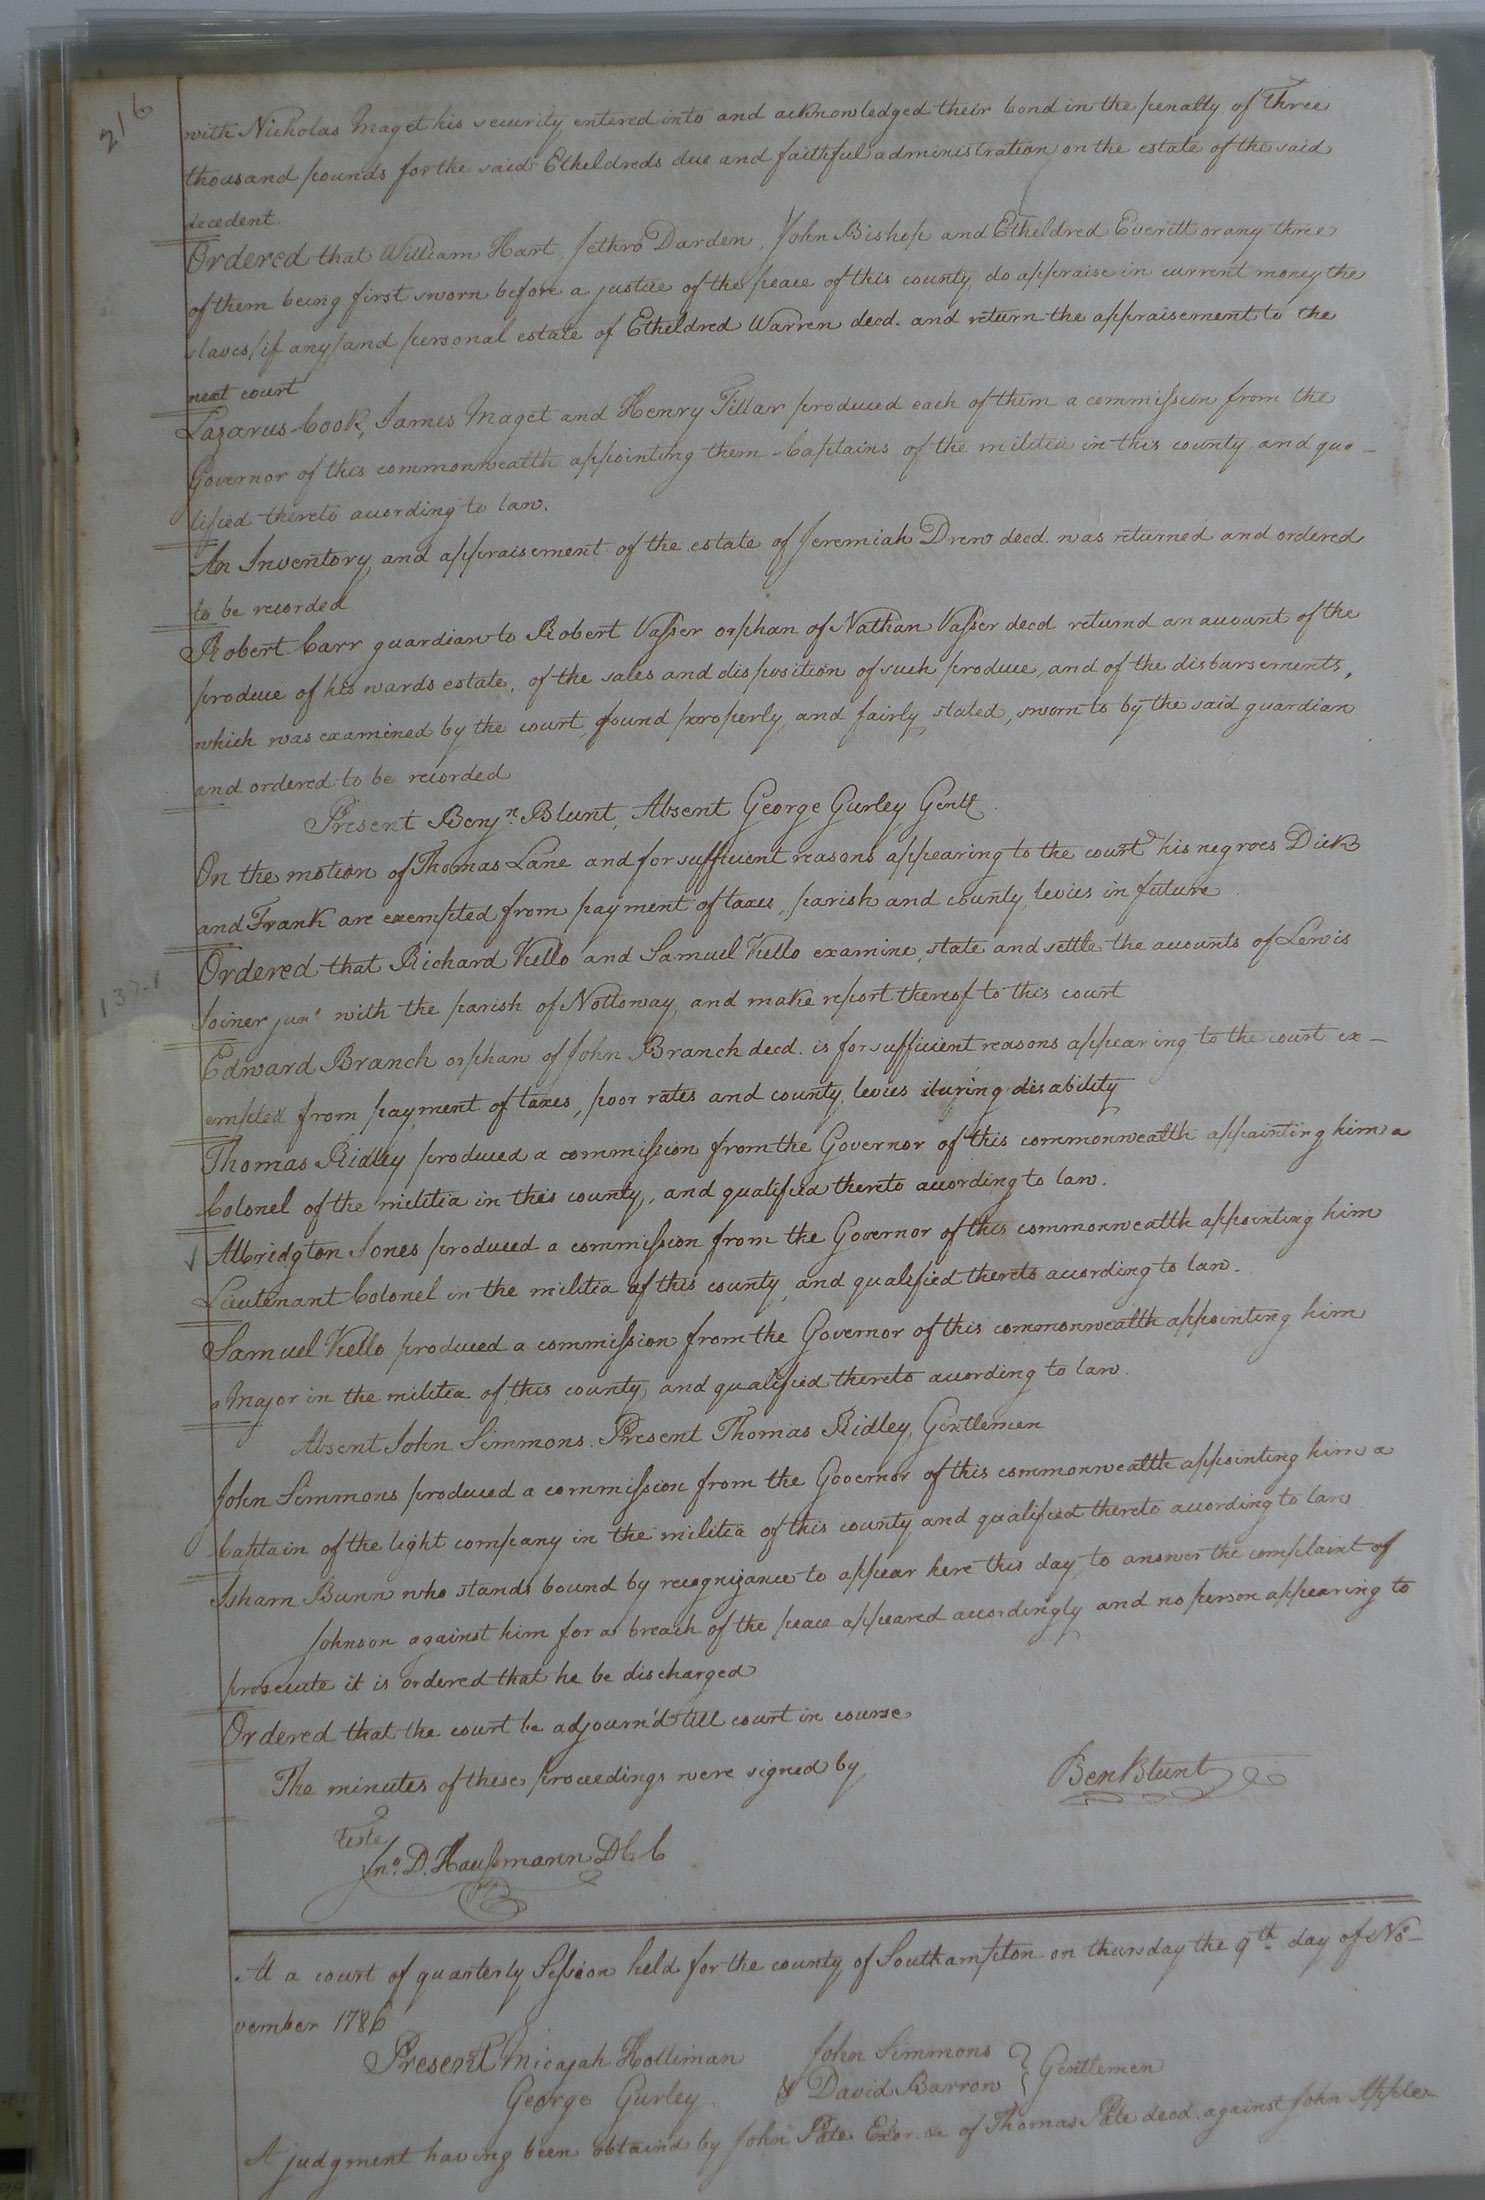 216
with Nicholas Maget his security entered into and acknowledged their bond in the penalty of Three
thousand pounds for the said Etheldreds due and faithful administration on the estate of the said
decedent.
Ordered that William Hart, Jethro Darden, John Bishop and Etheldred Everitt or any three
of them being first sworn before a justice of the peace of this county, do appraise in current money the
slaves/if any/and personal estate of Etheldred Warren decd. and return the appraisement to the
next court
Lazarus Cook, James Maget and Henry Tillar produced each of them a commission from the
Governor of this commonwealth appointing them Captains of the militia in this county, and qua-
lified thereto according to law.
An Inventory and appraisement of the estate of Jeremiah Drew decd. was returned and ordered
to be recorded
Robert Carr guardian to Robert Vasser orphan of Nathan Vasser decd returnd an account of the
produce of his wards estate, of the sales and disposition of such produce, and of the disbursements,
which was examined by the court, found properly and fairly stated, sworn to by the said guardian
and ordered to be recorded
Present Benjn. Blunt, Absent George Gurley Gentl.
On the motion of Thomas Lane and for sufficient reasons appearing to the court his negroes Dick
and Frank are exempted from payment of taxes, parish and county levies in future.
Ordered that Richard Kello and Samuel Kello examine, state and settle the accounts of Lewis
137-1
Joiner junr. with the parish of Nottoway, and make report thereof to this court
Edward Branch orphan of John Branch decd. is for sufficient reasons appearing to the court ex-
empted from payment of taxes, poor rates and county levies during disability
Thomas Ridley produced a commission from the Governor of this commonwealth appointing him a
Colonel of the militia in this county, and qualified thereto according to law.
Albridgton Jones produced a commission from the Governor of this commonwealth appointing him
Lieutenant Colonel in the militia of this county, and qualified thereto according to law.
Samuel Kello produced a commission from the Governor of this commonwealth appointing him
a Major in the militia of this county, and qualified thereto according to law.
Absent John Simmons. Present Thomas Ridley, Gentlemen
John Simmons produced a commission from the Governor of this commonwealth appointing him a
Captain of the light company in the militia of this county and qualified thereto according to law.
Isham Bunn who stands bound by recognizance to appear here this day to answer the complaint of
Johnson against him for a breach of the peace appeared accordingly and no person appearing to
prosecute it is ordered that he be discharged
Ordered that the court be adjourn'd till court in course
The minutes of these proceedings were signed by
Ben Blunt
Teste
Jno. D. Haussmann D C C
At a court of quarterly Session held for the county of Southampton on thursday the 9th. day of No-
vember 1786
Present Micajah Holliman John Simmons
George Gurley & David Barrow } Gentlemen
A judgment having been obtaind by John Pate Exor. &c of Thomas Pate decd. against John Apple-